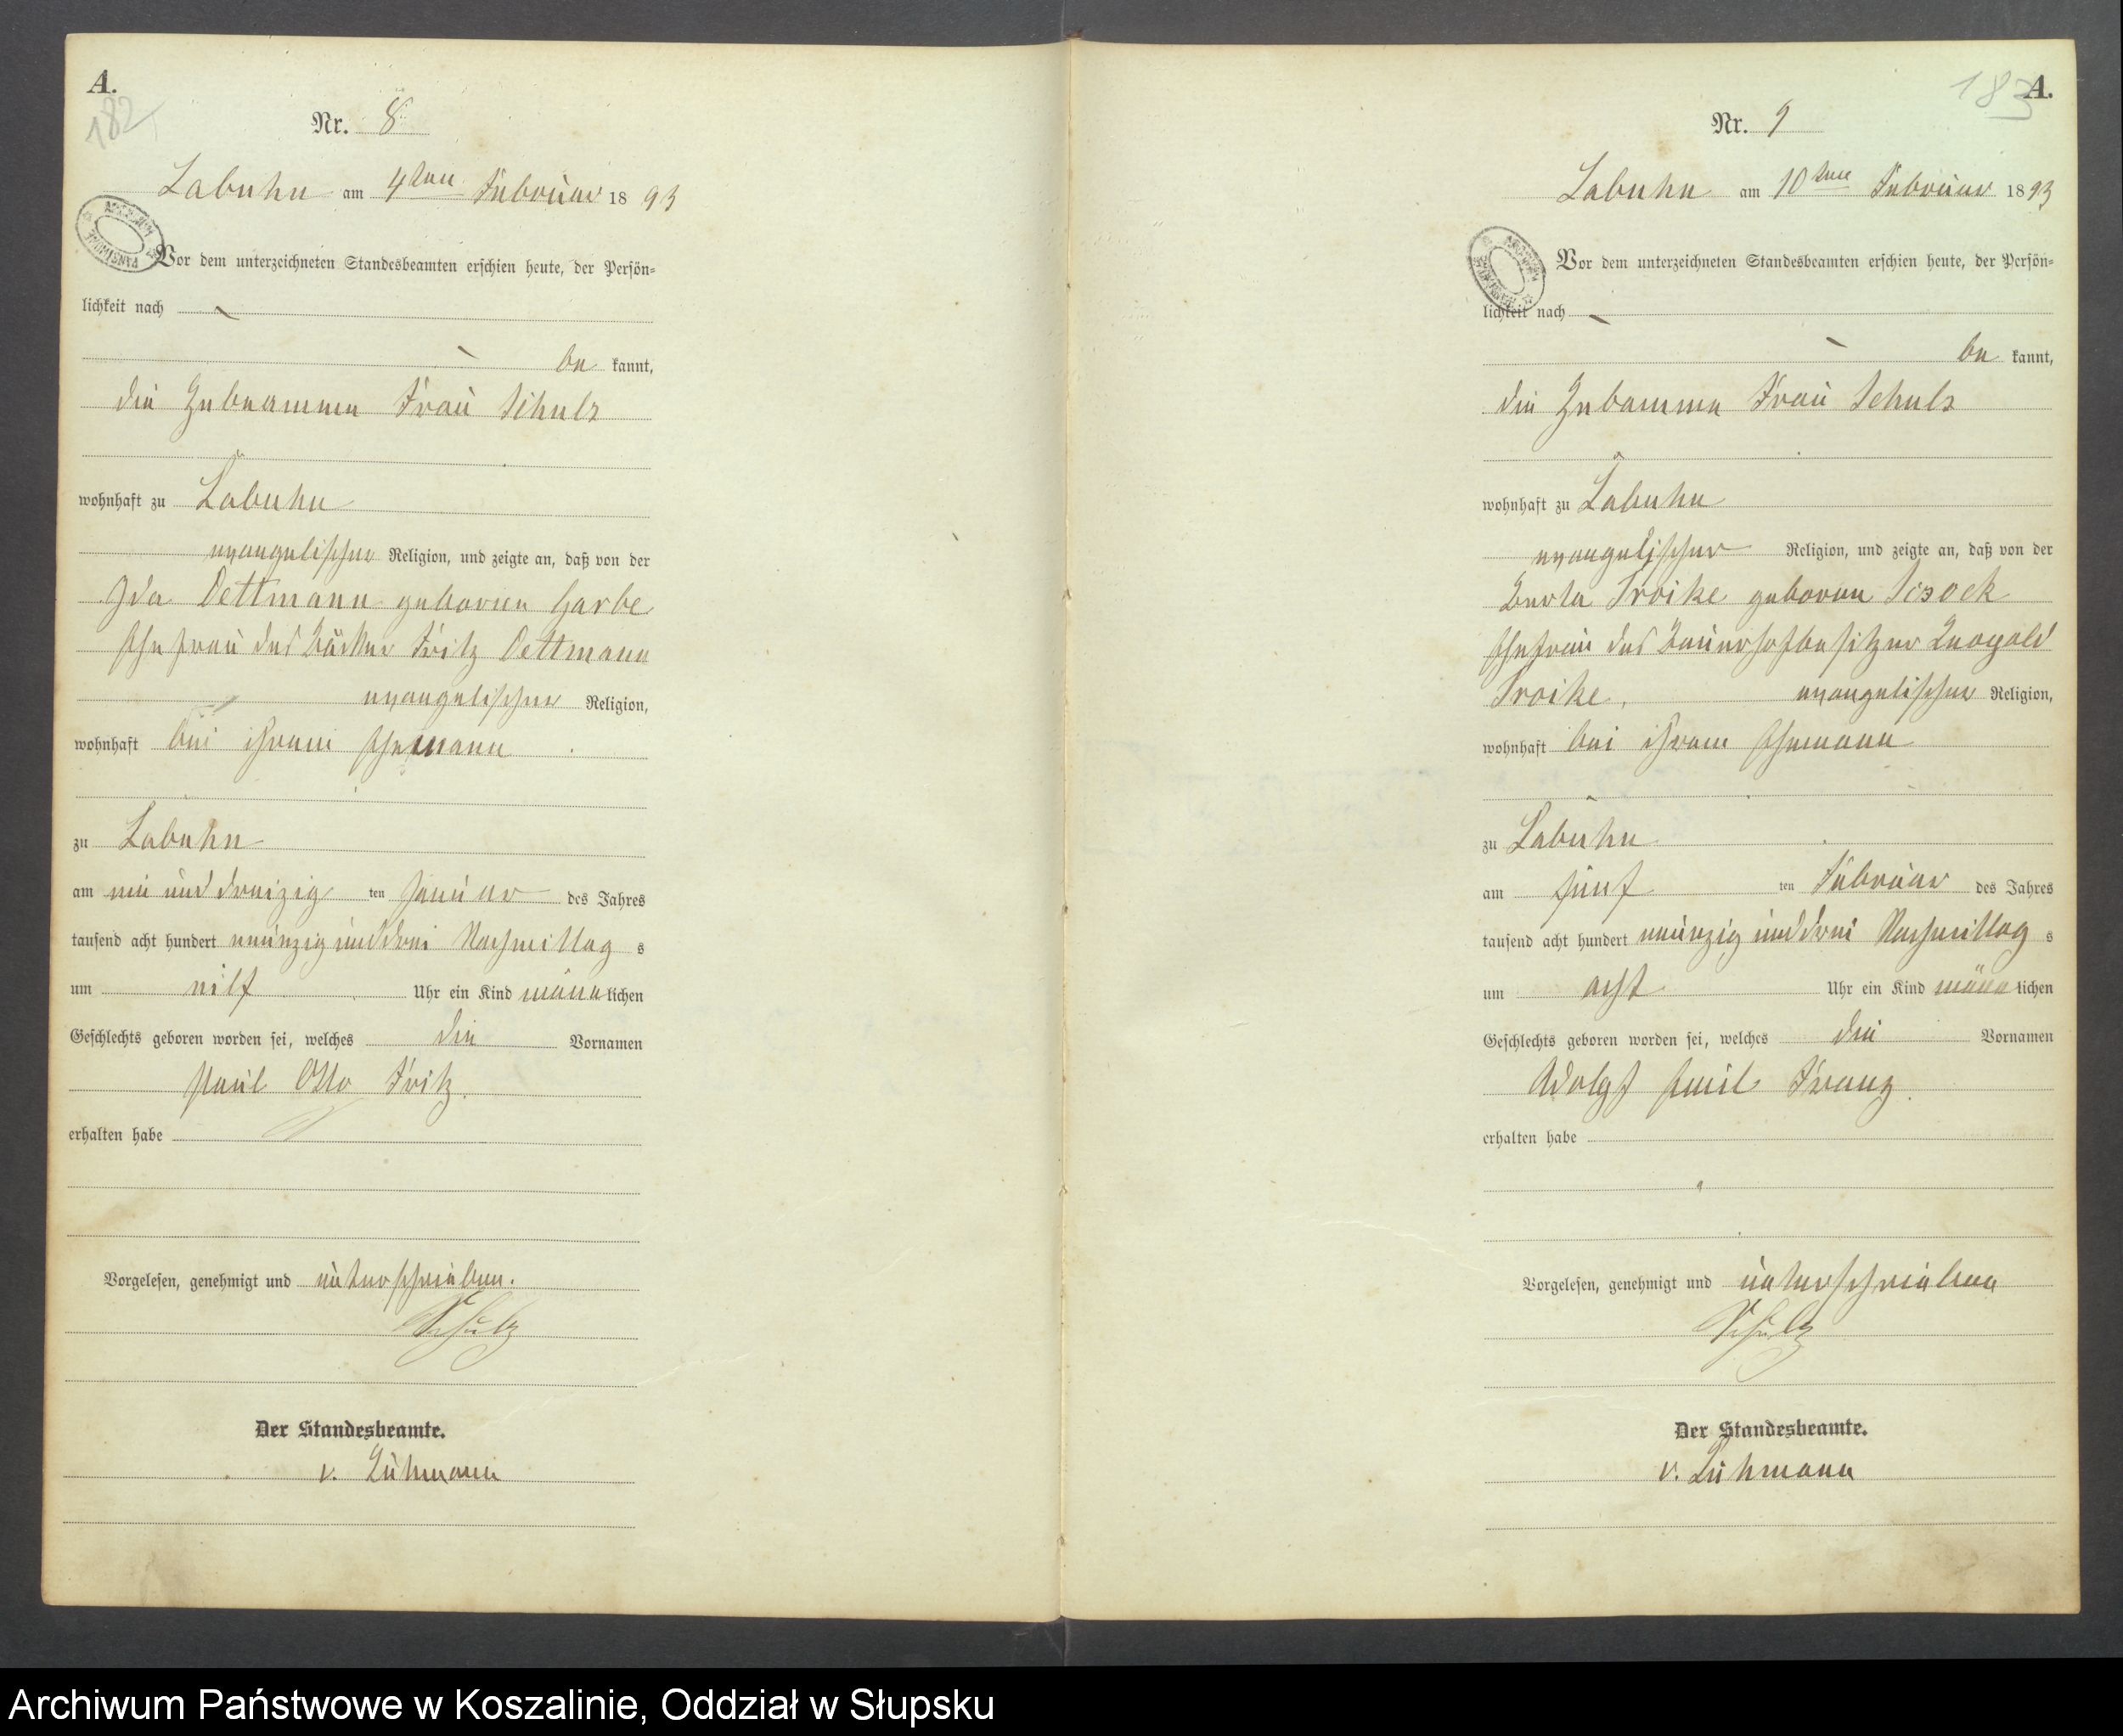 A.
182
Nr. 8
Labuhn am 4ten Februar 1893
Vor dem unterzeichneten Standesbeamten erschien heute, der Persön=
lichkeit nach
be kannt,
die Hebeamme Frau Schulz
wohnhaft zu Labuhn
evangelischer Religion, und zeigte an, daß von der
Ida Dettmann geboren Garbe
Ehefrau des Bäcker Fritz Dettmann
evangelischer Religion,
wohnhaft bei ihrem Ehemann
zu Labuhn
am ein und dreizig ten Januar des Jahres
tausend acht hundert neunzig und drei Nachmittag s
um elf Uhr ein Kind männlichen
Geschlechts geboren worden sei, welches die Vornamen
Paul Otto Fritz
erhalten habe
Vorgelesen, genehmigt und unterschrieben.
Schulz
Der Standesbeamte.
v. Lühmann
183
A.
Nr. 9
Labuhn am 10ten Februar 1893
Vor dem unterzeichneten Standesbeamten erschien heute, der Persön=
lichkeit nach
be kannt,
die Hebamme Frau Schulz
wohnhaft zu Labuhn
evangelischer Religion, und zeigte an, daß von der
Berta Troike geboren
Ehefrau des Bauerhofbesitzer Leopold
Troike, evangelischer Religion,
wohnhaft bei ihrem Ehemann
zu Labuhn
am fünf ten Februar des Jahres
tausend acht hundert neunzig und drei Nachmittag s
um acht Uhr ein Kind männlichen
Geschlechts geboren worden sei, welches die Vornamen
Adolf Emil Franz
erhalten habe
Vorgelesen, genehmigt und unterschrieben
Schulz
Der Standesbeamte.
v. Lühmann
Archiwum Państwowe w Koszalinie, Oddział w Słupsku